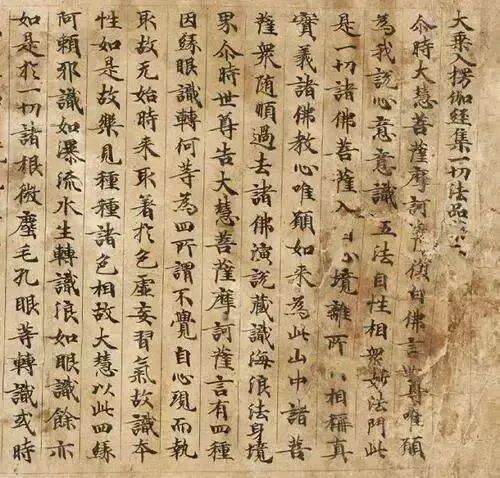 大乘入楞伽経集一切法品
尒時大慧菩薩摩訶薩復白佛言世尊唯願
為我說心意意識五法自性相衆妙法門此
是一切諸佛菩薩入心境離所相稱真
實義諸佛教心唯願如来為此山中諸菩
薩衆随順過去諸佛演說蔵識海浪法身境
界尒時世尊告大慧菩薩摩訶薩言有四種
因緣眼識轉何等為四所謂不覺自心現而執
取故无始時来取著於色虚妄習氣故識本
性如是故樂見種種諸色相故大慧以此四緣
阿頼邪識如瀑流水生轉識浪如眼識餘亦
如是於一切諸根微塵毛孔眼等轉識或時